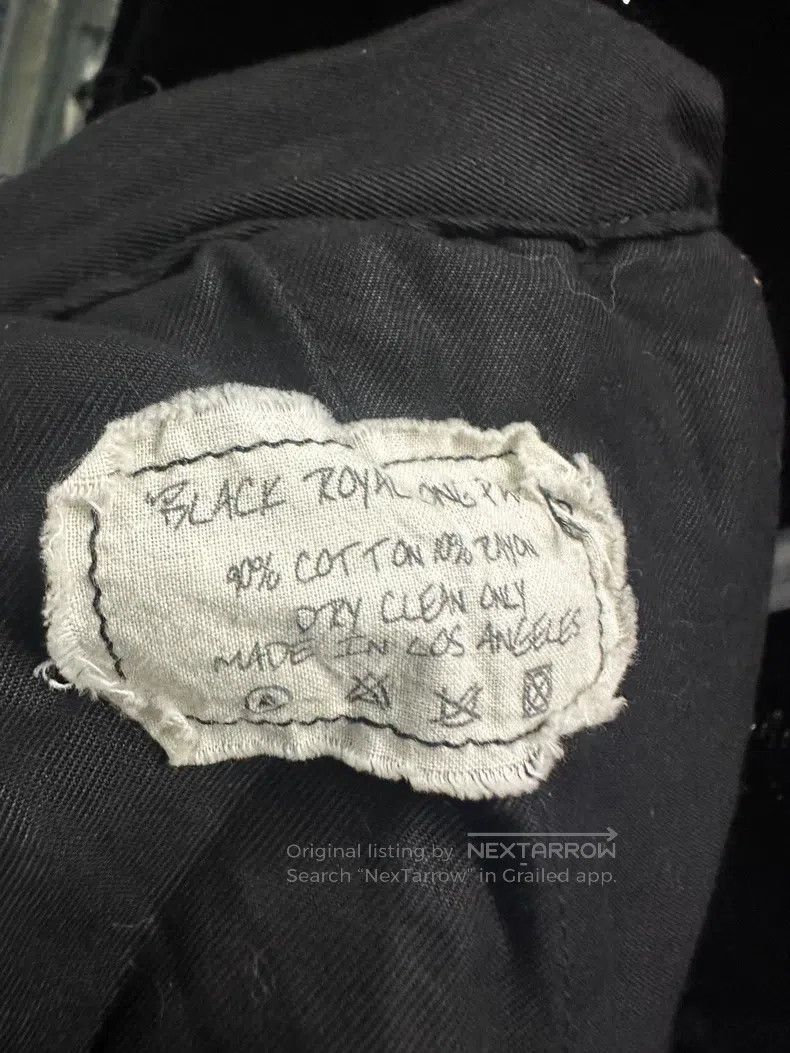 BLACK ROYAL
90% COTTON 10% RAYON
DRY CLEAN ONLY
MADE IN LOS ANGELES
A
Original listing by NEXTARROW
Search “NexTarrow” in Grailed app.